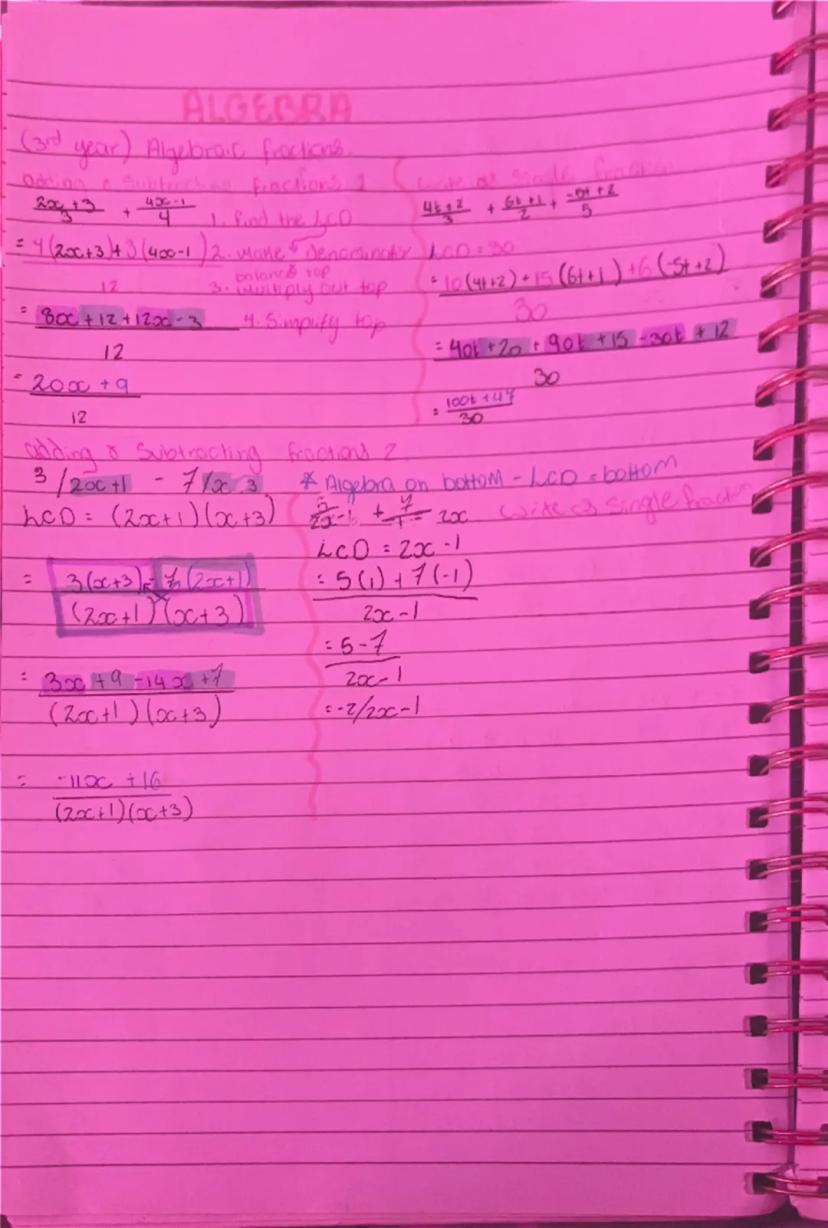 ALGEBRA
(3rd year) Algebraic fractions.
adding & subtracting fractions 1
2x+3/3 + 4x-1/4 1. Find the LCD
= 4(2x+3)+3(4x-1) 2. Make denominator
balance top
12 3. Multiply out top
= 8x+12+12x-3 4. Simplify top
12
= 20x+9
12
write as single fraction
4t+2/3 + 6t+1/2 + -5t+2/5
LCD = 30
= 10(4t+2)+15(6t+1)+6(-5t+2)
30
= 40t+20+90t+15-30t+12
30
= 100t+47
30
adding & subtracting fractions 2.
3/2x+1 - 7/x 3
LCD = (2x+1)(x+3)
= 3(x+3)-7(2x+1)
(2x+1)(x+3)
= 3x+9-14x+7
(2x+1)(x+3)
= -11x+16
(2x+1)(x+3)
* Algebra on bottom - LCD = bottom
5/2x-1 + 7/1-2x write as single fraction
LCD = 2x-1
= 5(1)+7(-1)
2x-1
= 5-7
2x-1
= -2/2x-1